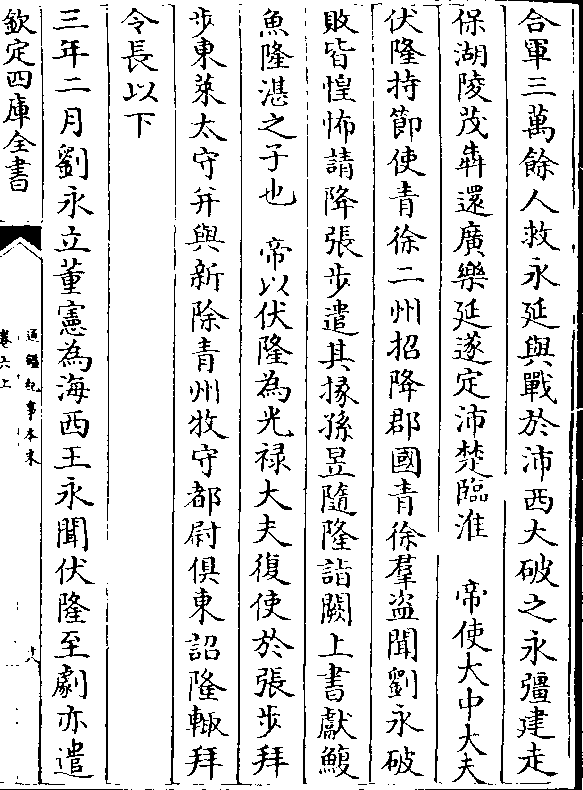 合軍三萬餘人救永延與戰於沛西大破之永彊建走
保湖陵茂犇還廣樂延遂定沛楚臨淮　帝使大中大夫
伏隆持節使青徐二州招降郡國青徐羣盗聞劉永破
敗皆惶怖請降張步遣其掾孫昱隨隆詣闕上書獻鰒
魚隆湛之子也　帝以伏隆為光禄大夫復使於張步拜
步東萊太守并與新除青州牧守都尉俱東詔隆輙拜
令長以下
三年二月劉永立董憲為海西王永聞伏隆至劇亦遣
欽定四庫全書
通鑑紀事本末
卷六上
十八